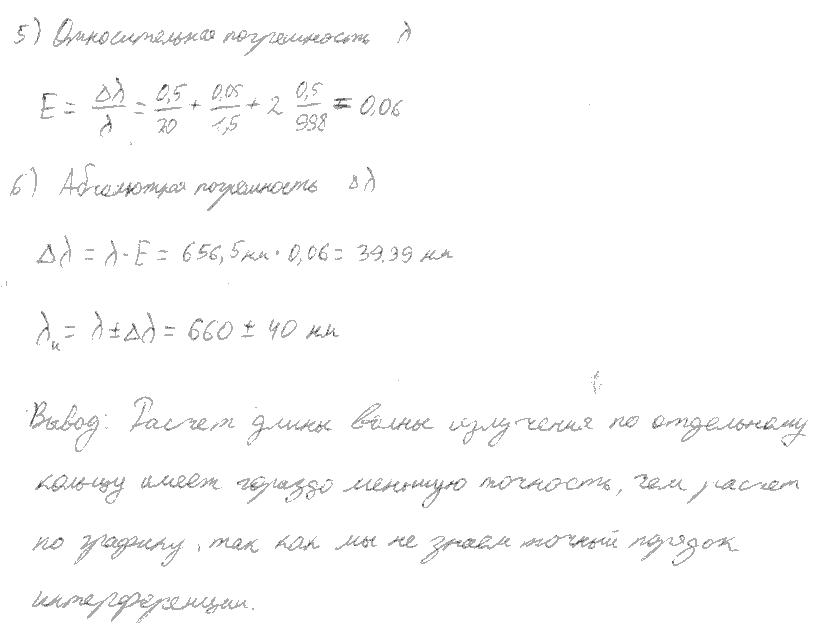 5) Относительная погрешность λ
E = Δλ/λ = 0,5/20 + 0,05/1,5 + 2 0,5/998 = 0,06
6) Абсолютная погрешность Δλ
Δλ = λ · E = 656,5 нм · 0,06 = 39.39 нм
λи = λ ± Δλ = 660 ± 40 нм
Вывод: Расчет длины волны излучения по отдельному
кольцу имеет гораздо меньшую точность, чем расчет
по графику, так как мы не знаем точный порядок
интерференции.